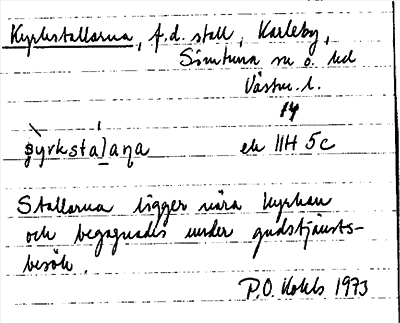 Kyrkstallarna, f.d. stall, Karleby,
Simtuna sn o. hd
Västm. l.
14
șyrksta̱laɳa ek 11H 5c
Stallarna ligger nära kyrkan
och begagnades under gudstjänsts-
besök.
P.O. 1973